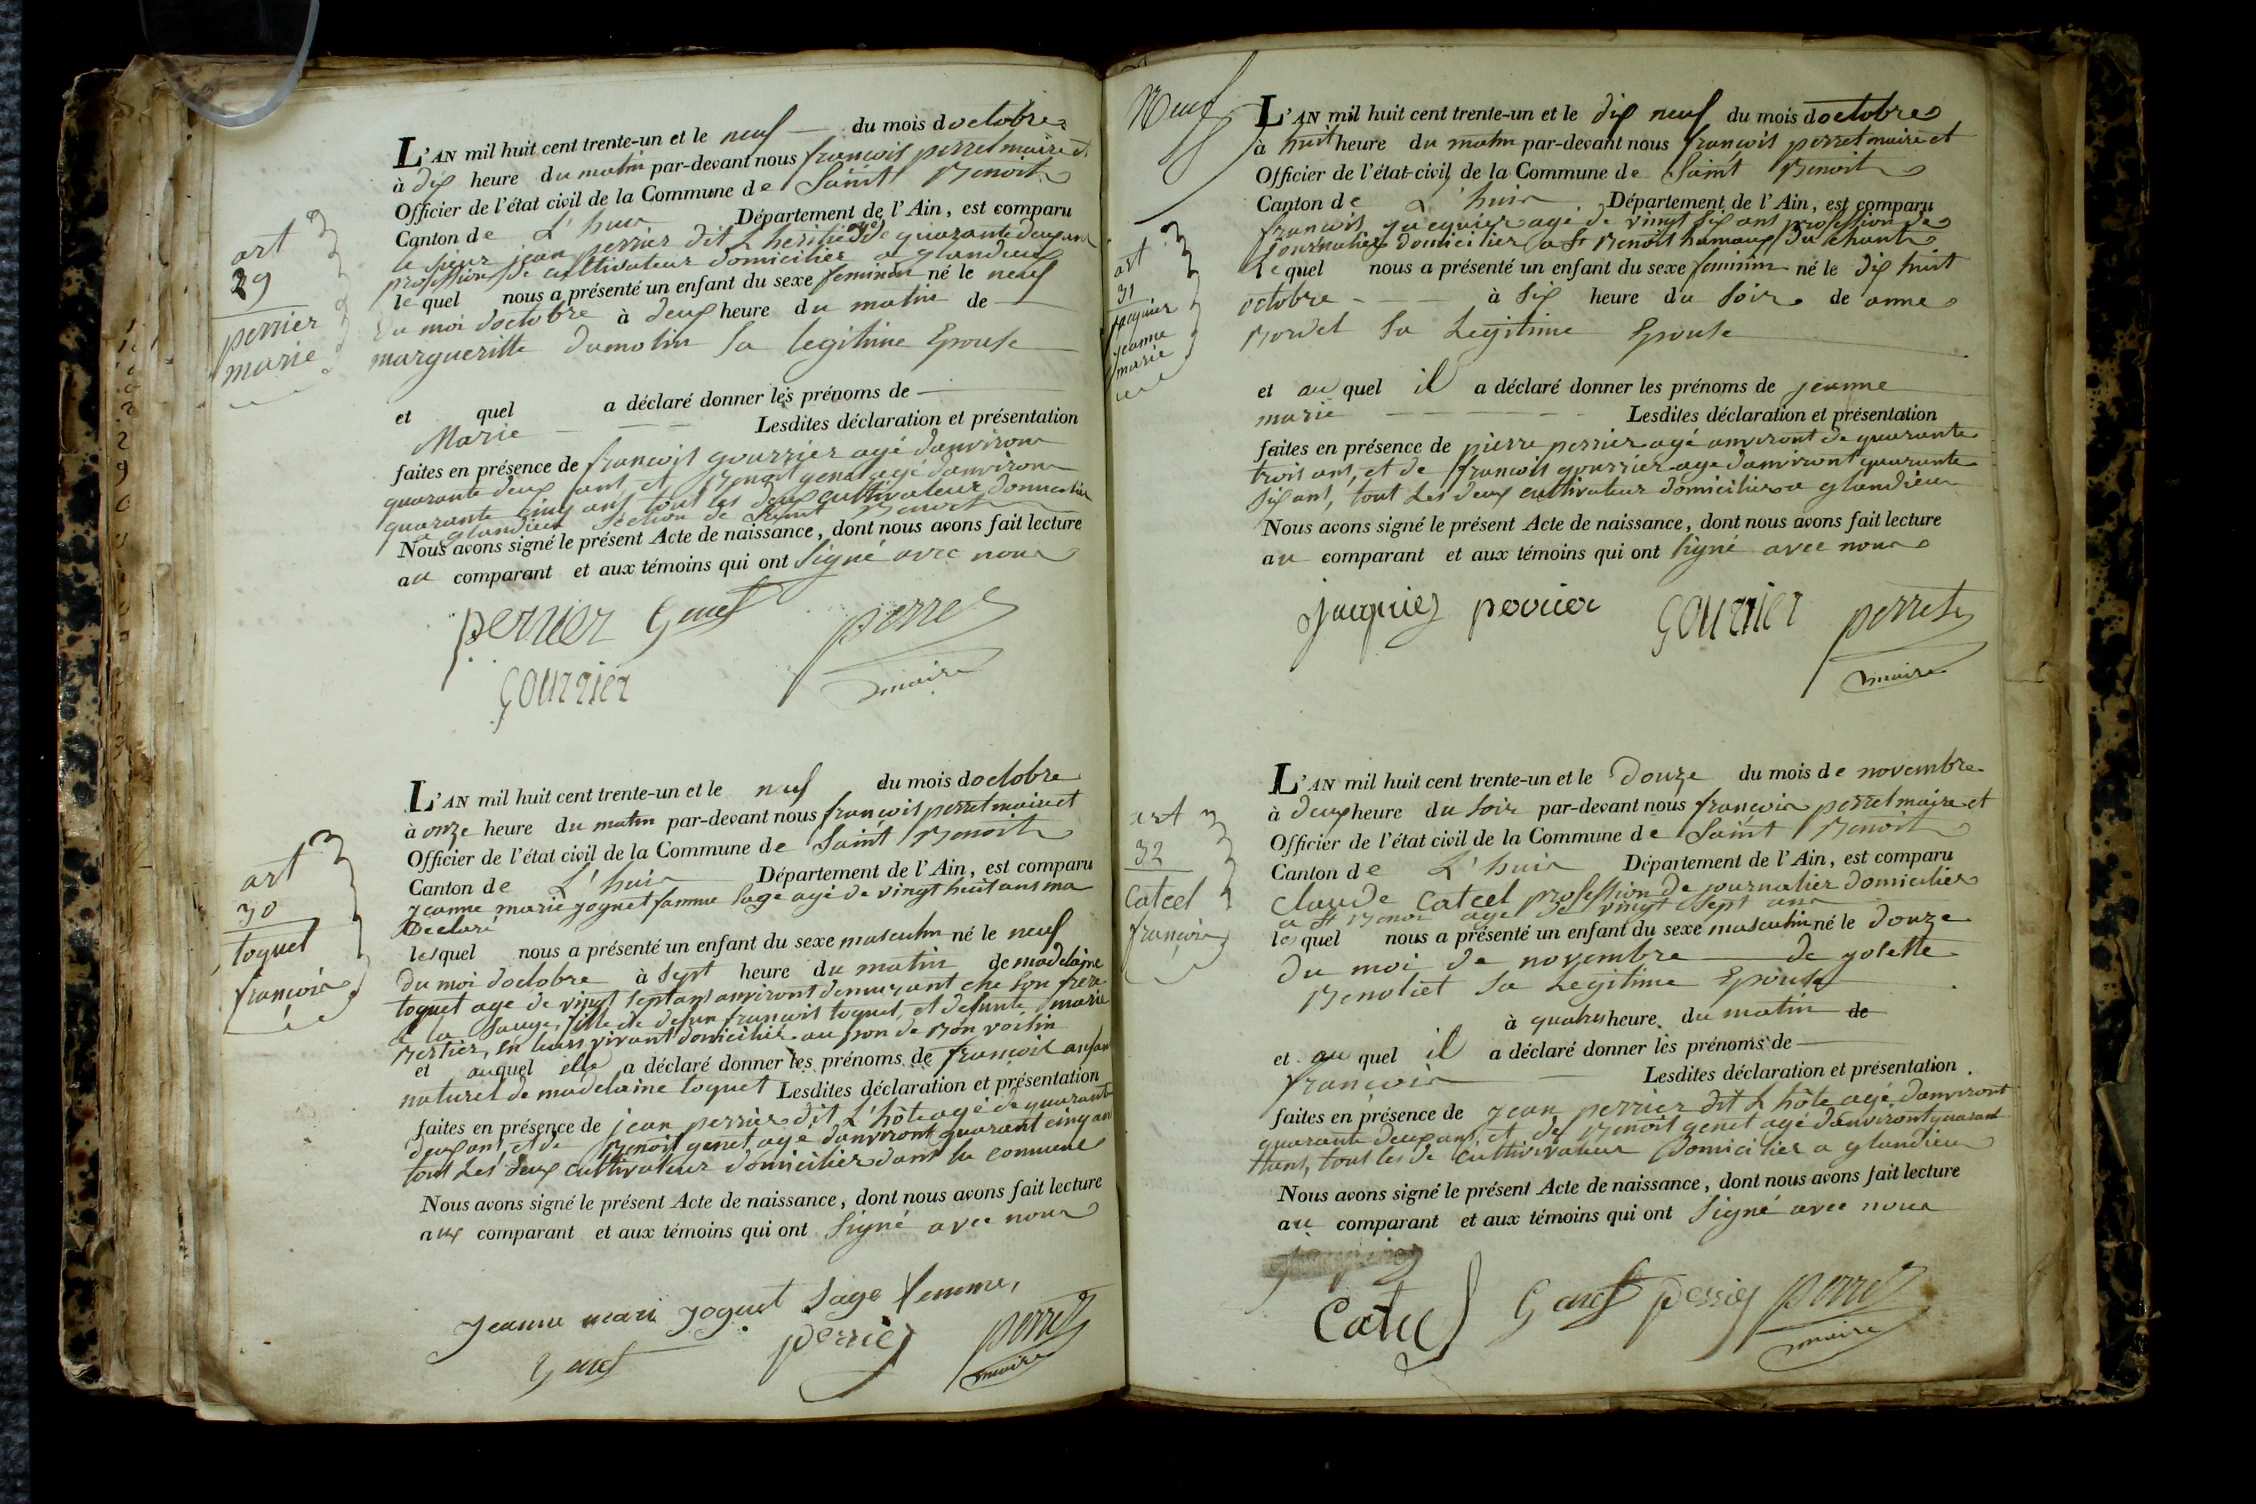 art
29
perrier
marie
L'AN mil huit cent trente-un et le neuf du mois doctobre
à dix heure du matin par-devant nous françois perret maire et
Officier de l'état civil de la Commune de Saint Benoit
Canton de L'huis Département de l'Ain, est comparu
le sieur jean perrier dit L'heritier de quarante deux ans
profession de cultivateur domicilier a glandieu
le quel nous a présenté un enfant du sexe feminin né le neuf
du moi doctobre à deux heure du matin de
margueritte dumolin sa legitime Epouse
et quel a déclaré donner les prénoms de
Marie Lesdites déclaration et présentation
faites en présence de françois gourrier agé danviron
quarante deux ans, et Benoit genet agé danviron
quarante cinq ans tout les deux cultivateur domicilier
a glandieu section de Saint Benoit
Nous avons signé le présent Acte de naissance, dont nous avons fait lecture
au comparant et aux témoins qui ont signé avec nous
perrier Genet perret
gourrier maire
art
30
toquet
françois
L'AN mil huit cent trente-un et le neuf du mois doctobre
à onze heure du matin par-devant nous françois perret maire et
Officier de l'état civil de la Commune de Saint Benoit
Canton de L'huis Département de l'Ain, est comparu
jeanne marie joguet famme sage agé de vingt huit ans ma
Declaré
lesquel nous a présenté un enfant du sexe masculin né le neuf
du moi doctobre à sept heure du matin de madelaine
toquet age de vingt sept ans anviront demurant che son frere
a la sauge, fille de defun françois toquet, et defunte marie
Bertier, en leurs vivant domicilié au pon de Bon voisin
et auquel elle a déclaré donner les prénoms de françois anfan
naturel de madelaine toquet Lesdites déclaration et présentation
faites en présence de jean perrier dit L'hôte agé de quarante
deux ans, et de Benoit genet agé danviront quarant cinq ans
tout les deux cultivateur domicilier dans la commune
Nous avons signé le présent Acte de naissance, dont nous avons fait lecture
aux comparant et aux témoins qui ont signé avec nous
jeanne mari joguet sage femme,
Genet perrier perret
maire
Neuf
art
31
jaquier
jeanne
marie
L'AN mil huit cent trente-un et le dix neuf du mois doctobre
à huit heure du matin par-devant nous françois perret maire et
Officier de l'état-civil de la Commune de Saint Benoit
Canton de L'huis Département de l'Ain, est comparu
francois jacquier agé de vingt six ans profession de
journalier domicilier a St Benoit hamaux du chant
le quel nous a présenté un enfant du sexe feminin né le dix huit
octobre à six heure du soir de anne
Bordel sa Legitime Epouse
et au quel il a déclaré donner les prénoms de jeanne
marie Lesdites déclaration et présentation
faites en présence de pierre perrier agé anviront de quarante
trois ans, et de francois gourrier age danviront quarante
six ans, tout les deux cultivateur domicilier a glandieu
Nous avons signé le présent Acte de naissance, dont nous avons fait lecture
au comparant et aux témoins qui ont signé avec nous
jacquier perrier gourrier perret
maire
art
32
Catcel
françois
L'AN mil huit cent trente-un et le Douze du mois de novembre
à deux heure du soir par-devant nous françois perret maire et
Officier de l'état civil de la Commune de Saint Benoit
Canton de L'huis Département de l'Ain, est comparu
Claude Catcel profession de journalier domicilier
a St Benoi age de vingt sept ans
le quel nous a présenté un enfant du sexe masculin né le douze
du moi de novembre de jolette
Benoliet sa Legitime Epouse
à quatre heure du matin de
et au quel il a déclaré donner les prénoms de
françois Lesdites déclaration et présentation
faites en présence de jean perrier dit L'hôte agé danviront
quarante deux ans, et de Benoit genet agé danviront quarant
tout les de cultivivateur Domicilier a glandieu
Nous avons signé le présent Acte de naissance, dont nous avons fait lecture
au comparant et aux témoins qui ont signé avec nous
Catcel Genet perrier perret
maire